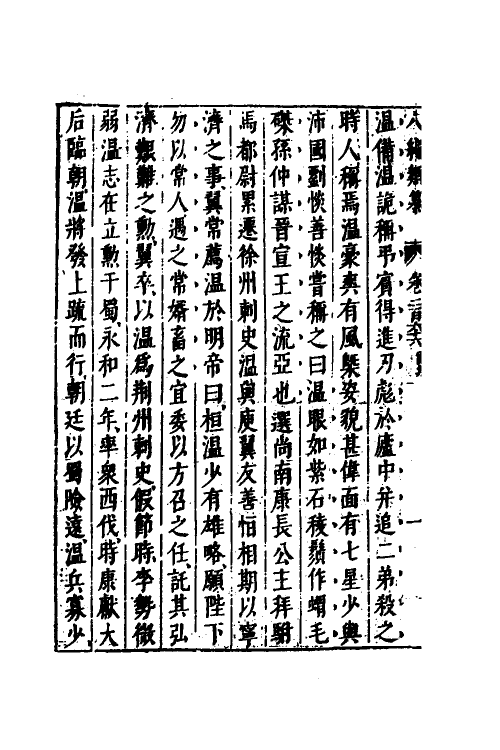 温備温詭稱弔賓得進刃彪於廬中并追二弟殺之
時人稱焉温豪爽有風槩姿貌甚偉面有七星少與
沛國劉惔善惔嘗稱之曰温眼如紫石稜鬚作蝟毛
磔孫仲謀晉宣王之流亞也選尚南康長公主拜駙
馬都尉累遷徐州刺史温與庾翼友善恒相期以寧
濟之事翼常薦温於明帝曰桓温少有雄略願陛下
勿以常人遇之常婿畜之宜委以方召之任託其弘
濟艱難之勲翼卒以温爲荆州刺史假節時李勢微
弱温志在立勲于蜀永和二年率衆西伐時康獻大
后臨朝温將發上疏而行朝廷以蜀險遠温兵寡少